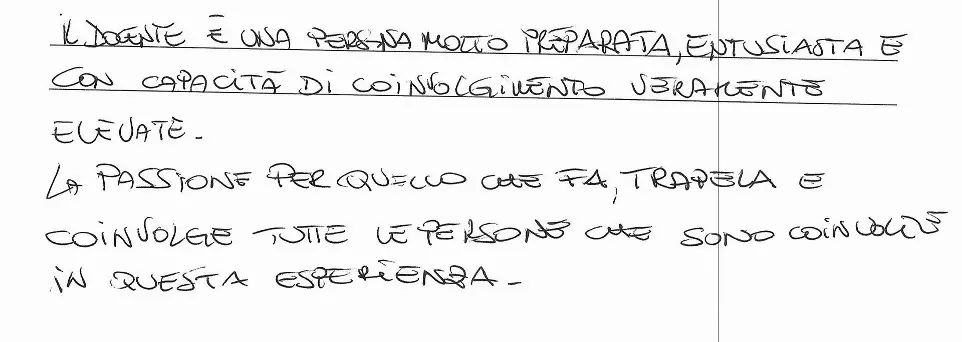 IL DOCENTE È UNA PERSONA MOLTO PREPARATA, ENTUSIASTA E
CON CAPACITÀ DI COINVOLGIMENTO VERAMENTE
ELEVATE.
LA PASSIONE PER QUELLO CHE FA, TRAPELA E
COINVOLGE TUTTE LE PERSONE CHE SONO COINVOLTE
IN QUESTA ESPERIENZA.